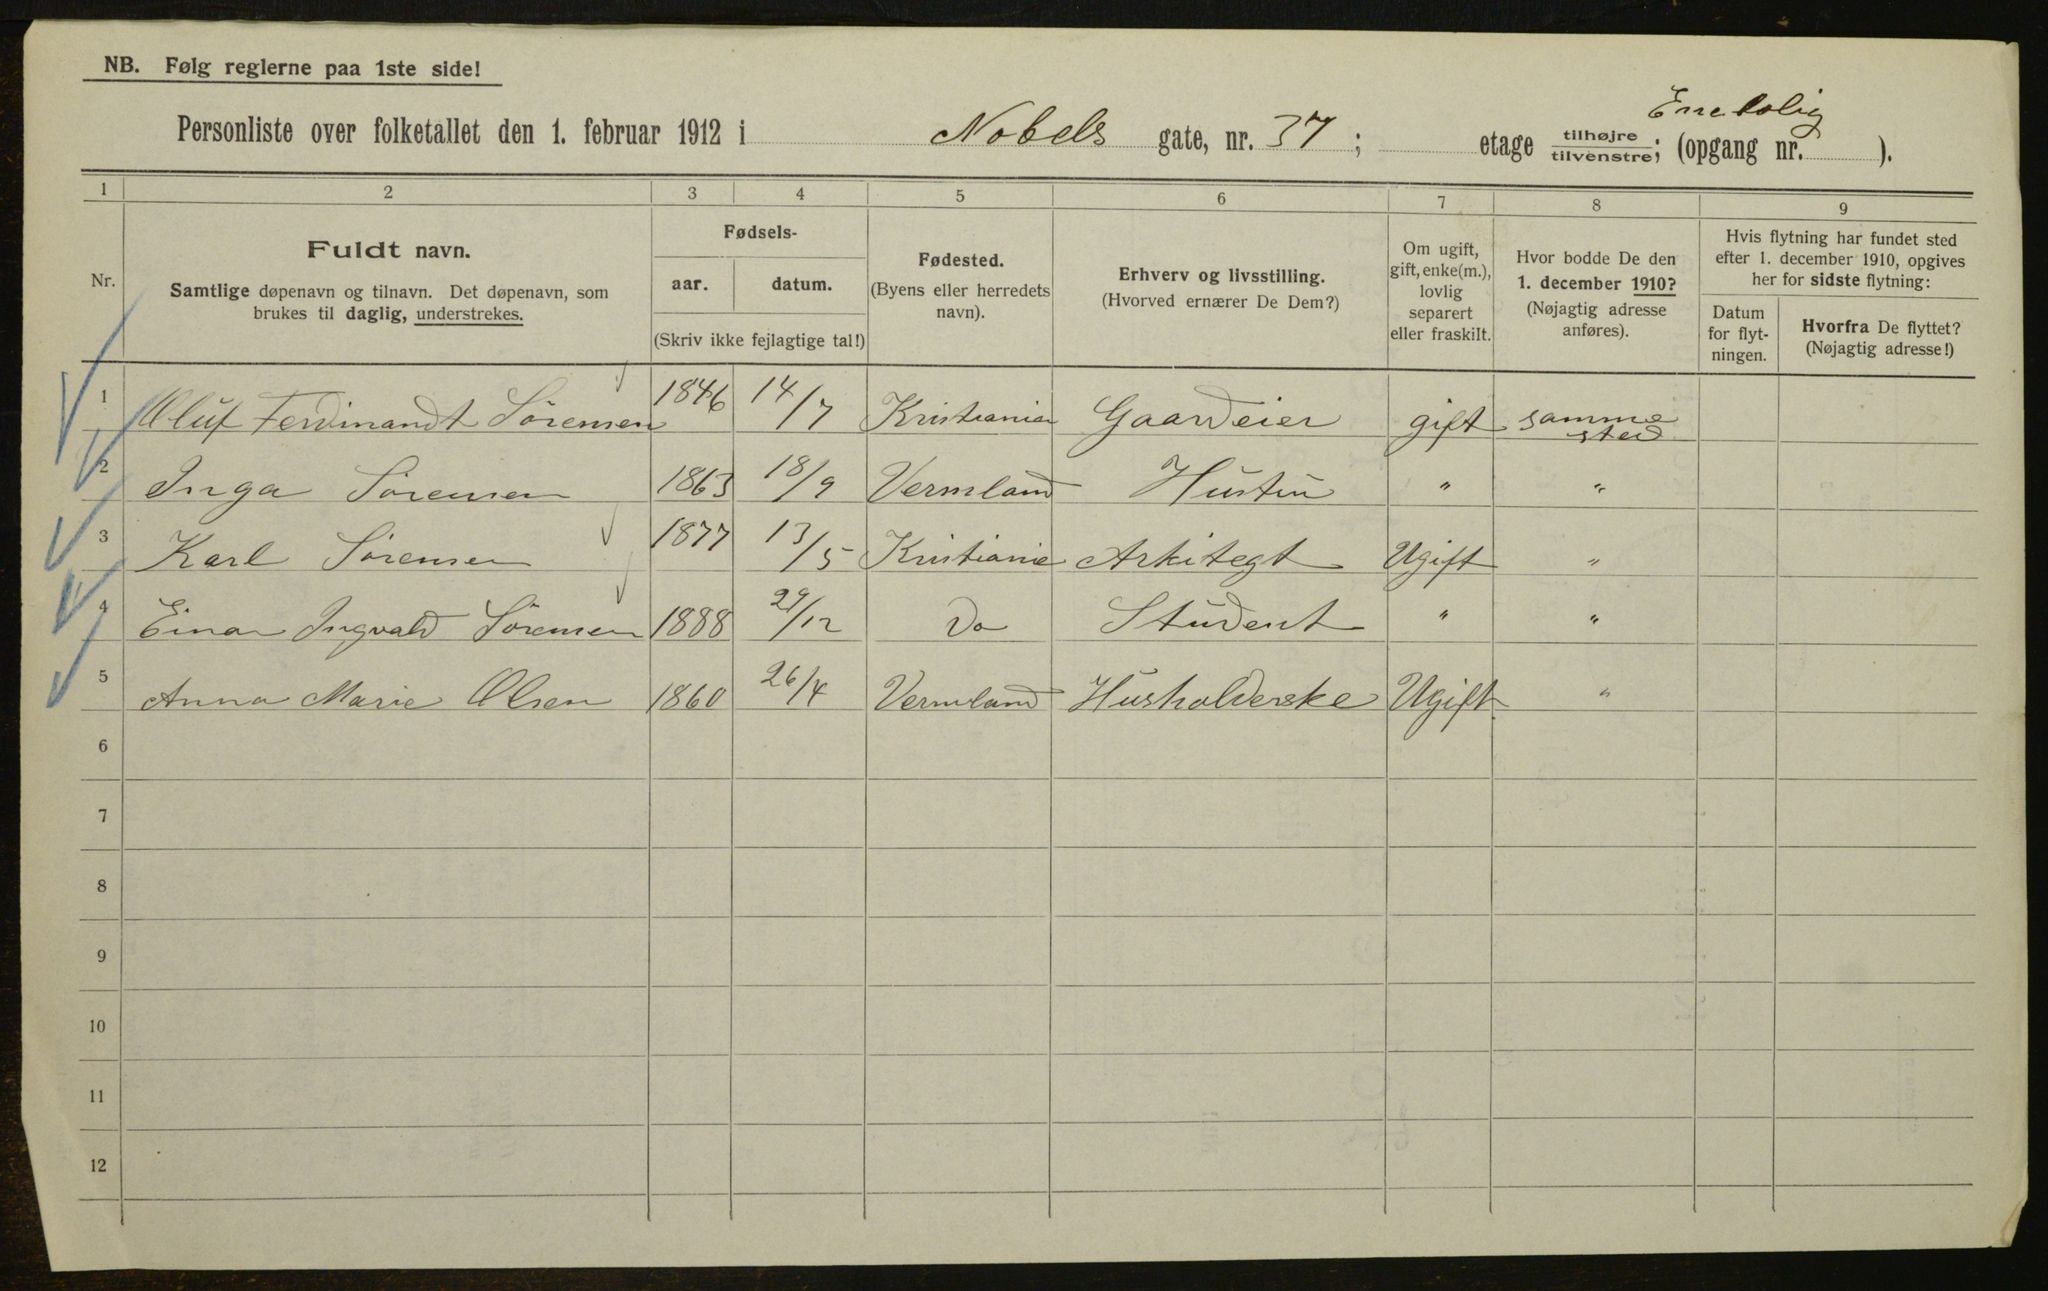 NB. Følg reglerne paa 1ste side!
Enebolig
Personliste over folketallet den 1. februar 1912 i Nobels gate, nr. 37; etage tilhøjre tilvenstre; (opgang nr. ).
1 2 3 4 5 6 7 8 9
Nr.
Fuldt navn.
Samtlige døpenavn og tilnavn. Det døpenavn, som
brukes til daglig, understrekes.
Fødsels-
aar. datum.
(Skriv ikke fejlagtige tal!)
Fødested.
(Byens eller herredets
navn).
Erhverv og livsstilling.
(Hvorved ernærer De Dem?)
Om ugift,
gift, enke(m.),
lovlig
separert
eller fraskilt.
Hvor bodde De den
1. december 1910?
(Nøjagtig adresse
anføres).
Hvis flytning har fundet sted
efter 1. december 1910, opgives
her for sidste flytning:
Datum
for flyt-
ningen.
Hvorfra De flyttet?
(Nøjagtig adresse!)
1 Oluf Ferdinandt Sørensen 1846 14/7 Kristiania Gaardeier gift samme sted
2 Inga Sørensen 1863 18/9 Vermland Hustru " "
3 Karl Sørensen 1877 13/5 Kristiania Arkitegt Ugift "
4 Einar Ingvald Sørensen 1888 29/12 Do Student " "
5 Anna Marie Olsen 1860 26/4 Vermland Husholderske Ugift "
6
7
8
9
10
11
12